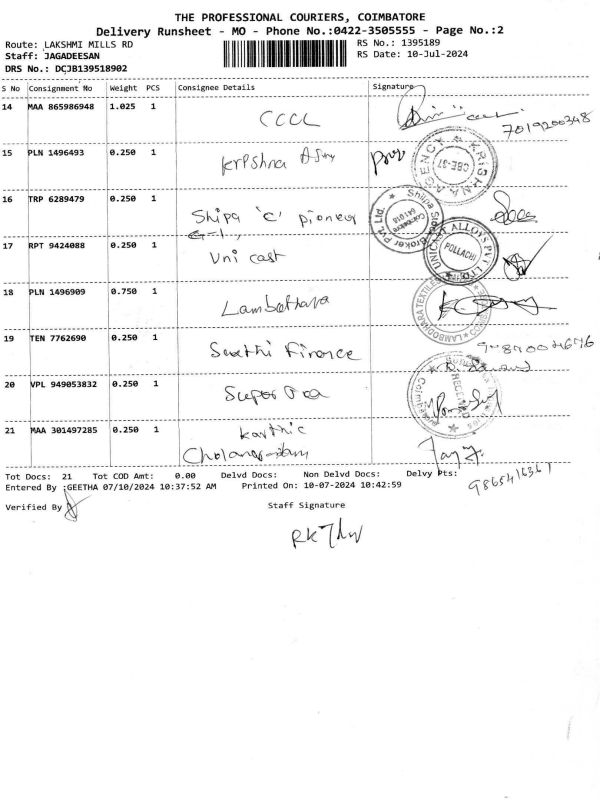 THE PROFESSIONAL COURIERS, COIMBATORE
Delivery Runsheet - MO - Phone No.:0422-3505555 - Page No.:2
Route: LAKSHMI MILLS RD
RS No.: 1395189
Staff: JAGADEESAN
RS Date: 10-Jul-2024
DRS No.: DCJB139518902
S No Consignment No Weight PCS Consignee Details Signature
14 MAA 865986948 1.025 1 CCCL
7019200348
15 PLN 1496493 0.250 1 krishna
KRISHNA AGENCY CBE-37
16 TRP 6289479 0.250 1 Shipa 'C' pioneer
Shilpa Stock Broker Pvt. Ltd. Coimbatore 641 018
17 RPT 9424088 0.250 1 Uni cast
UNICAST ALLOYS PVT LTD POLLACHI
18 PLN 1496909 0.750 1 Lambothara
19 TEN 7762690 0.250 1 Swathi Finance
20 VPL 949053832 0.250 1 Super
RECEIVED
21 MAA 301497285 0.250 1 Karthic
Tot Docs: 21 Tot COD Amt: 0.00 Delvd Docs: Non Delvd Docs: Delvy Pts:
9865416361
Entered By :GEETHA 07/10/2024 10:37:52 AM Printed On: 10-07-2024 10:42:59
Verified By
Staff Signature